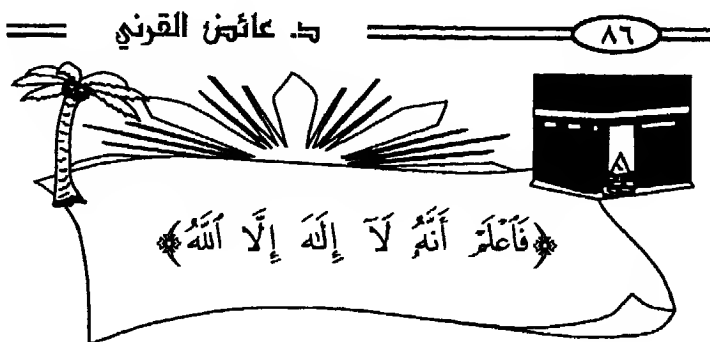 د. عائض القرني ٨٦
﴿فَٱعْلَمْ أَنَّهُۥ لَآ إِلَٰهَ إِلَّا ٱللَّهُ﴾